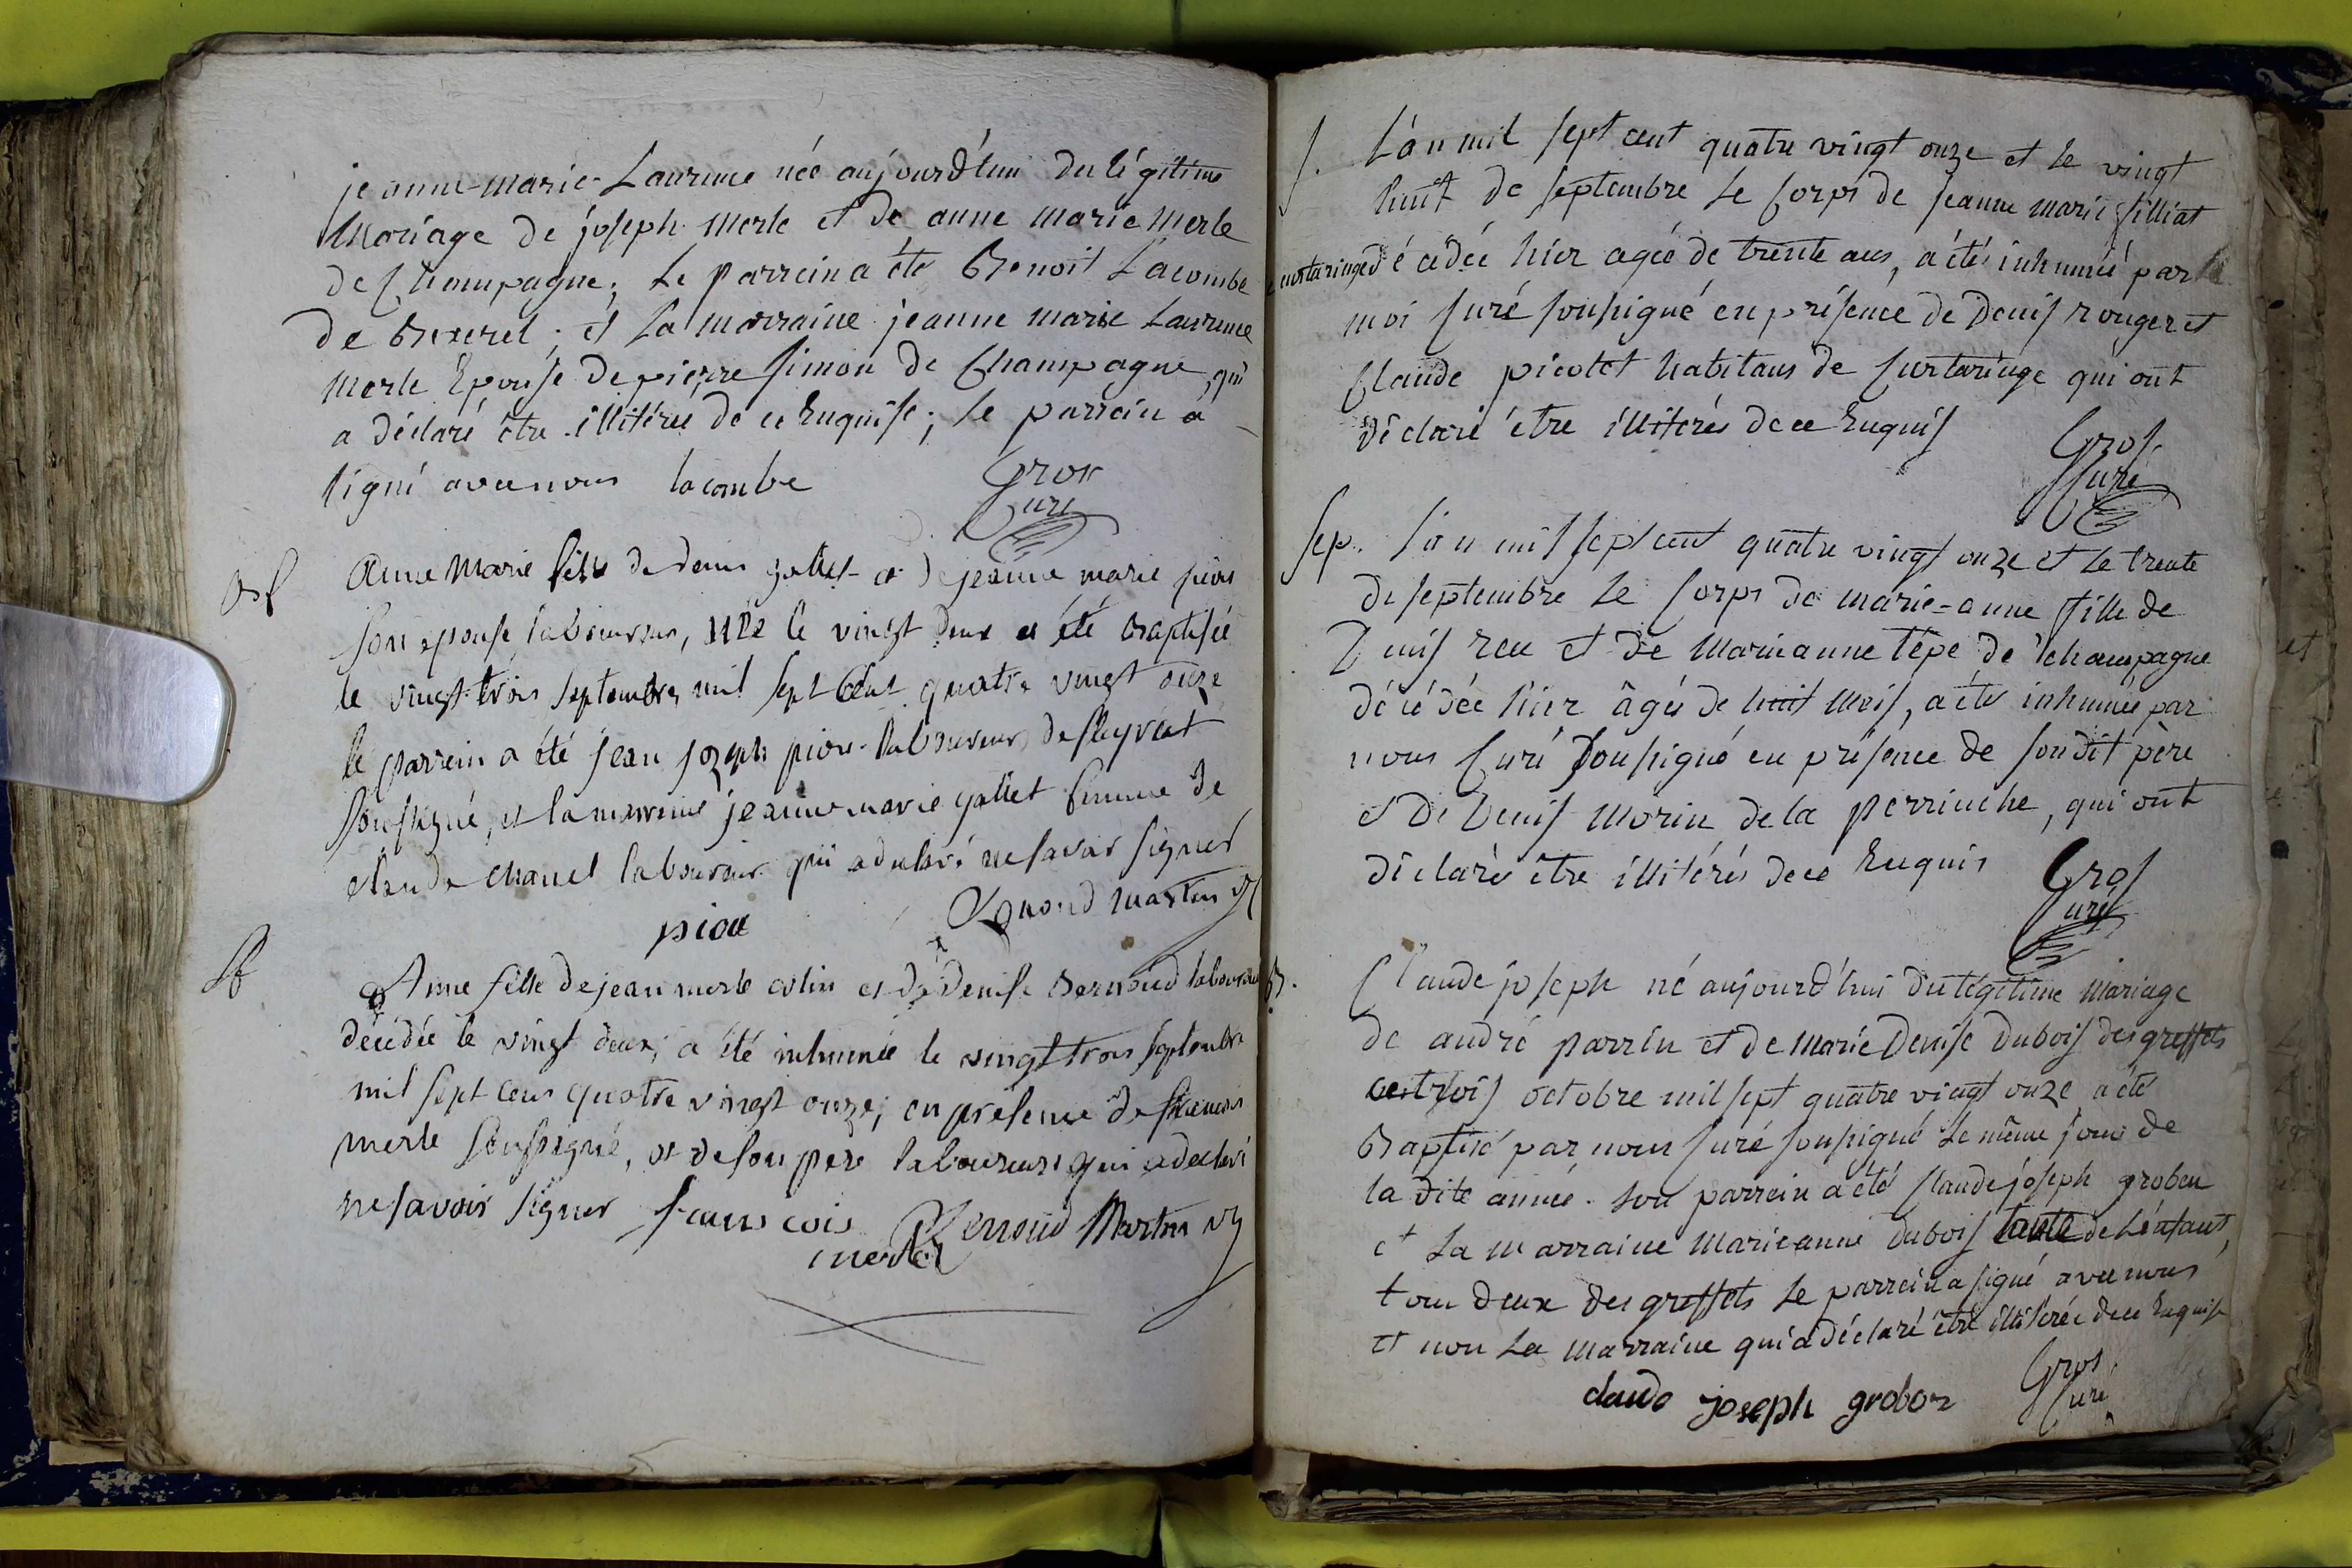 jeanne-marie-Laurence née aujourd'hui du légitime
Mariage de joseph Merle et de anne marie Merle
de Champagne; le parrein a été Benoit Lacombe
de ; et la marraine jeanne marie Laurence
Merle Epouse de pierre Simon de Champagne, qui
a déclaré être illitérée de ce Enquise; le parrein a
signé avec nous lacombe Gros
Curé
Anne Marie fille de denis gallet et de jeanne marie piou
son epouse, laboureurs, née le vingt deux a été Baptisée
le vingt trois septembre mil sept Cent quatre vingt onze
le parrein a été jean joseph piou laboureur de fleyriat
soussigné, et la marreine jeanne marie gallet femme de
claude chanel laboureur qui a declaré ne savoir signer
piou Renoud Martin vy
Anne fille de jean merle colin et de denise Bernoud laboureurs
décédée le vingt deux, a été inhumée le vingt trois septembre
mil sept cens quatre vingt onze; en présence de françois
merle soussigné, et de son père laboureurs qui a declaré
ne savoir signer francois Renoud Martin vy
merle
S. L'an mil sept cent quatre vingt onze et le vingt
huit de septembre le Corps de jeanne marie filliat
de curtaringe décédée hier agée de trente ans, a été inhumée par
moi Curé soussigné en présence de Denis rouger et
Claude picotet habitans de Curtaringe qui ont
Déclaré être illitérés de ce Enquis
Gros
Curé
Sep. L'an mil sept cent quatre vingt onze et le trente
de septembre le Corps de marie-anne fille de
Denis reu et de Marianne tépe de Champagne
décédée hier âgée de huit mois, a été inhumée par
nous Curé soussigné en présence de son dit père
et de Denis Morin de la perrinche, qui ont
déclaré être illitérés de ce Enquis
Gros
Curé
B. Claude joseph né aujourd'hui du légitime Mariage
de andré parrin et de Marie Denise Dubois des greffets
ce trois octobre mil sept quatre vingt onze a été
Baptisé par nous Curé soussigné le même jour de
la dite année. Son parrein a été Claude joseph grobon
et la marraine Marieanne Dubois tante de L'enfant,
tous deux des greffets le parrein a signé avec nous
et non la marraine qui a déclaré être illitérée de ce Enquise
Gros
claude joseph grobon Curé